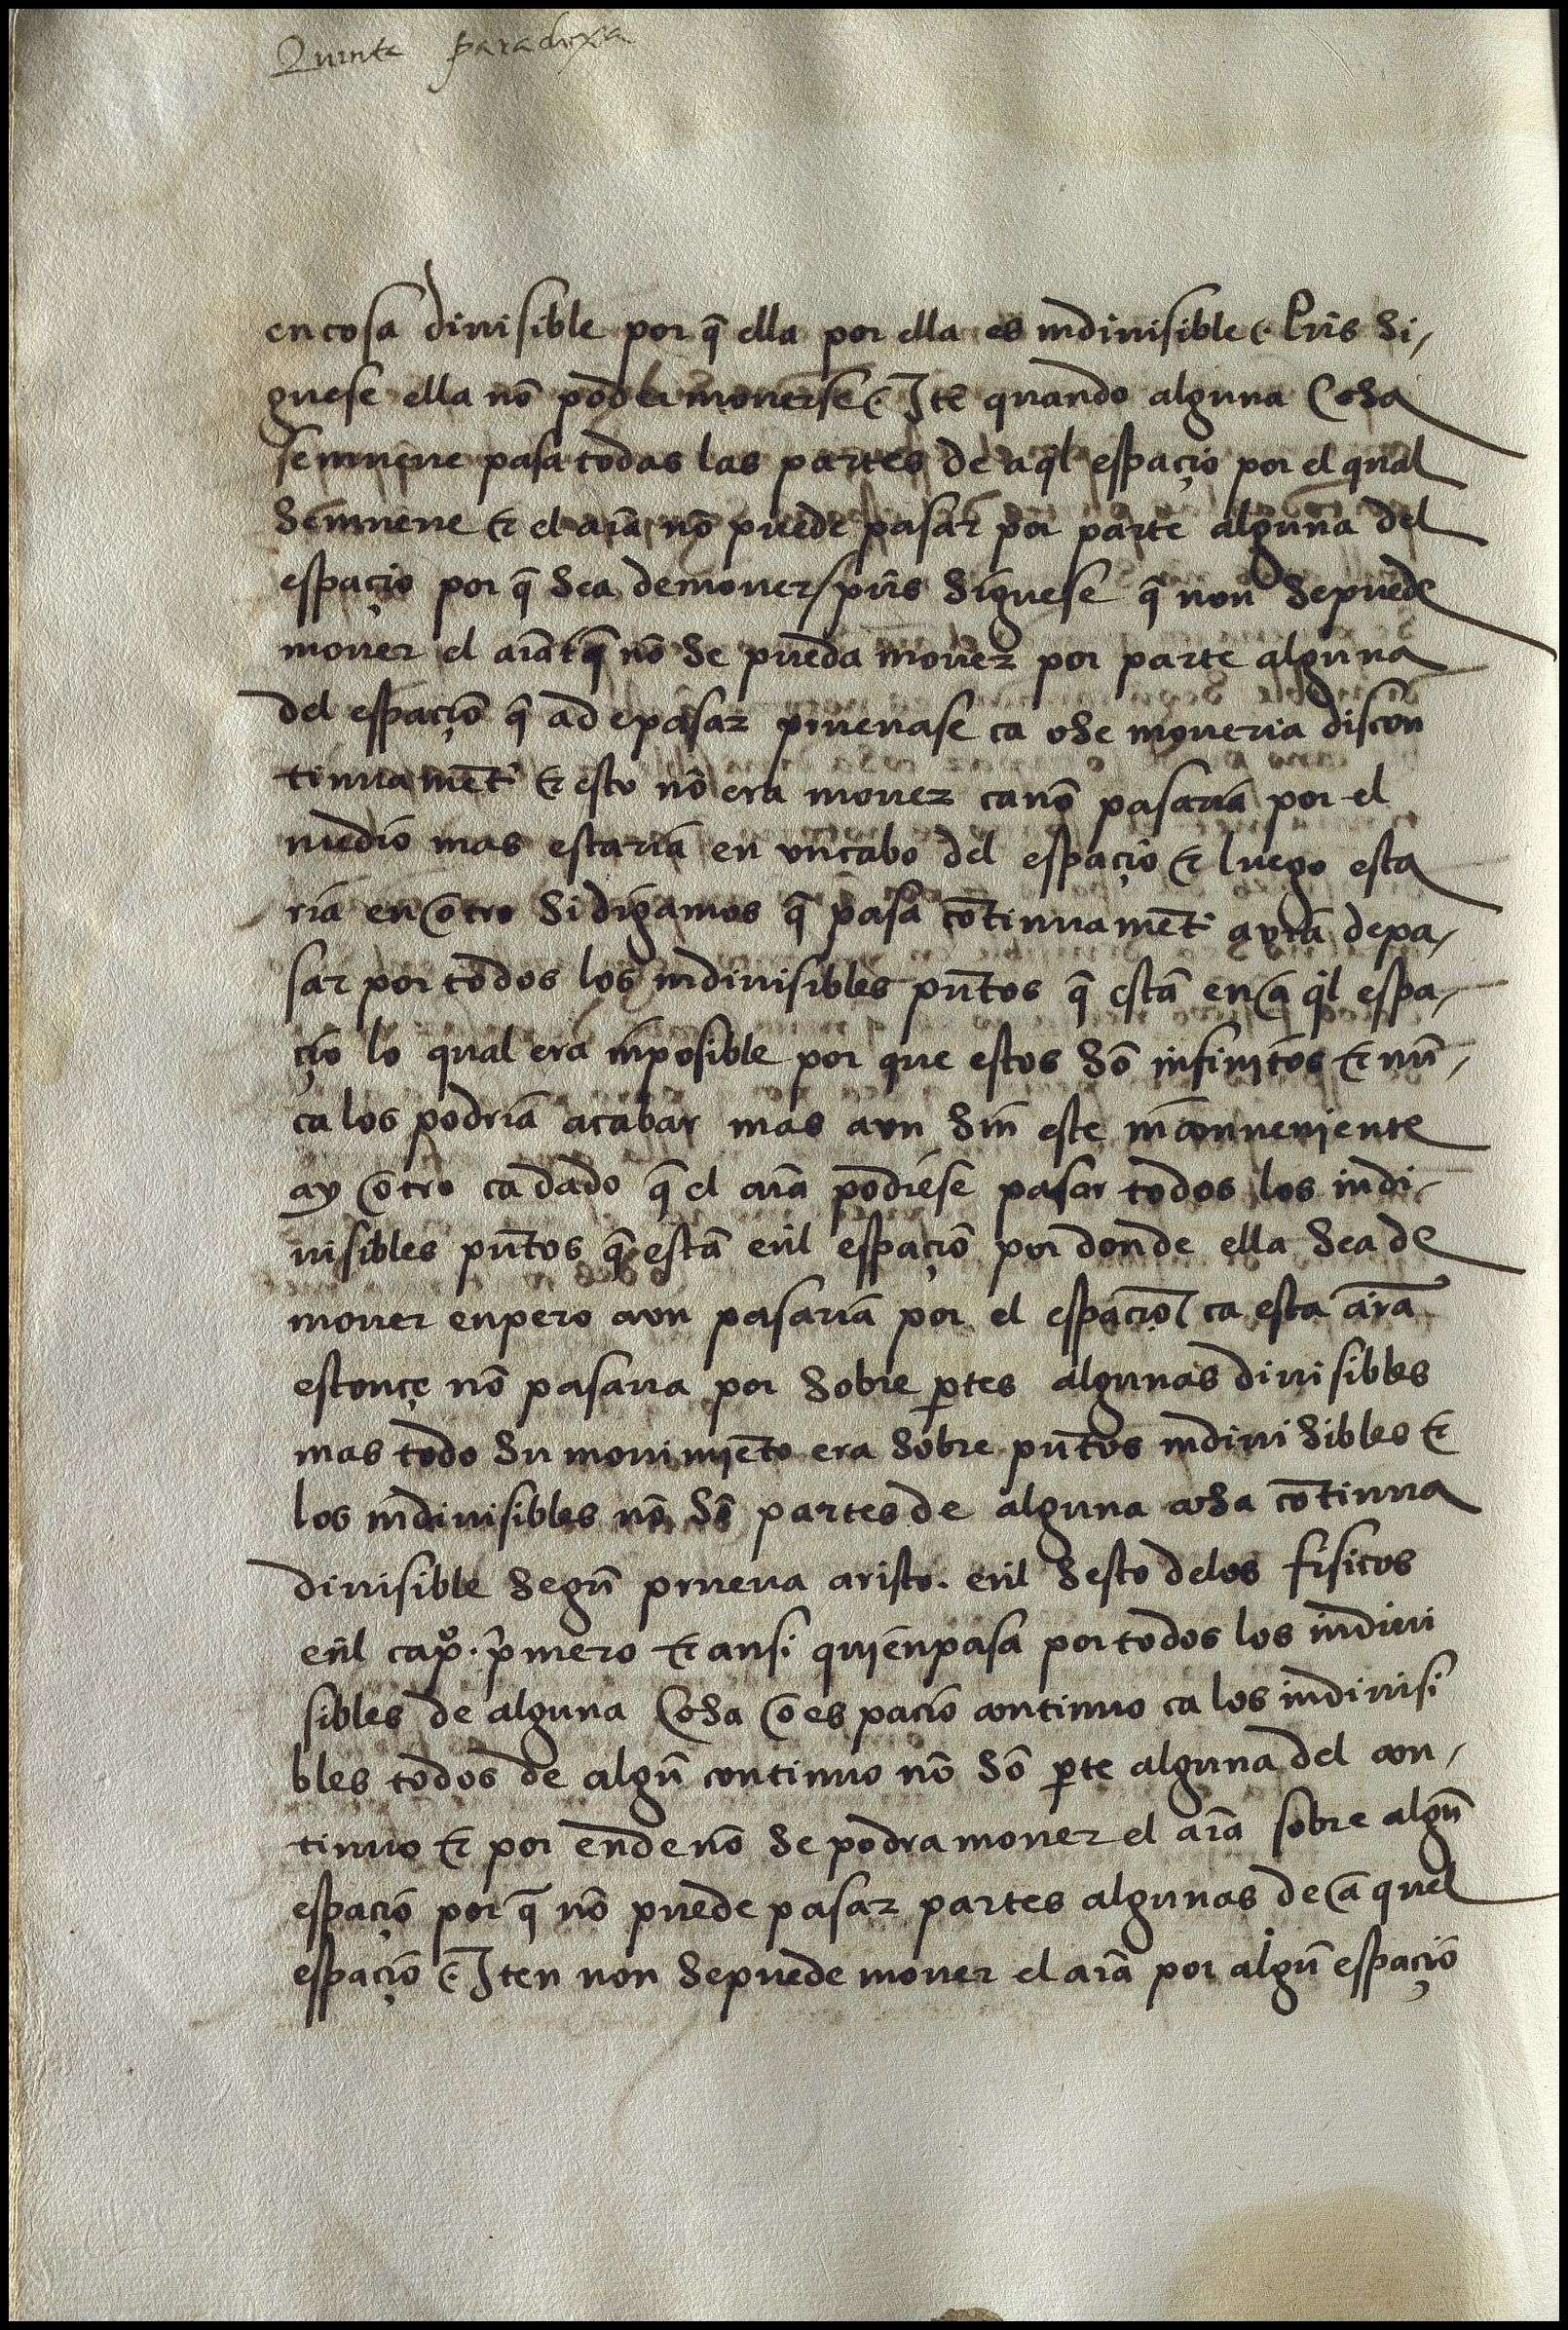 Quinta paradoxa
en cosa diuisible por q̃ ella por ella es indiuisible. Pues si-
guese ella nõ poder mouerse. Itẽ quando alguna cosa
se mueue pasa todas las partes de aq̃l espaçio por el qual
se mueue & el aĩa nõ puede pasar por parte alguna del
espaçio por q̃ sea de mouer / pues siguese q̃ non se puede
mouer el aĩa & q̃ nõ se pueda mouer por parte alguna
del espaçio q̃ a de pasar prueuase ca o se moueria discon
tinuamẽt & esto nõ era mouer ca nõ pasaria por el
medio mas estaria en vn cabo del espaçio & luego esta
ria en otro si digamos q̃ pasa cõtinuamẽt auria de pa-
sar por todos los indiuisibles pũtos q̃ estã en aq̃l espa-
çio lo qual era inposible por que estos sõ infinitos & nũ-
ca los podria acabar mas avn sin este inconueniente
ay otro ca dado q̃ el aĩa podiese pasar todos los indi-
uisibles pũtos q̃ estã eñl espaçio por donde ella sea de
mouer enpero avn pasaria por el espaçio / ca esta aĩa
estonçe nõ pasaua por sobre p̃tes algunas diuisibles
mas todo su mouimiẽto era sobre pũtos indiuisibles &
los indiuisibles nõ sõ partes de alguna cosa cõtinua
diuisible segũ prueua aristo. eñl sesto delos fisicos
eñl capº. p̃mero & ansi quien pasa por todos los indiui
sibles de alguna cosa o espacio continuo ca los indiuisi
bles todos de algũ continuo nõ sõ p̃te alguna del con-
tinuo & por ende nõ se podra mouer el aĩa sobre algũ
espaçio por q̃ nõ puede pasar partes algunas de aquel
espaçio. Iten non se puede mouer el aĩa por algũ espaçio